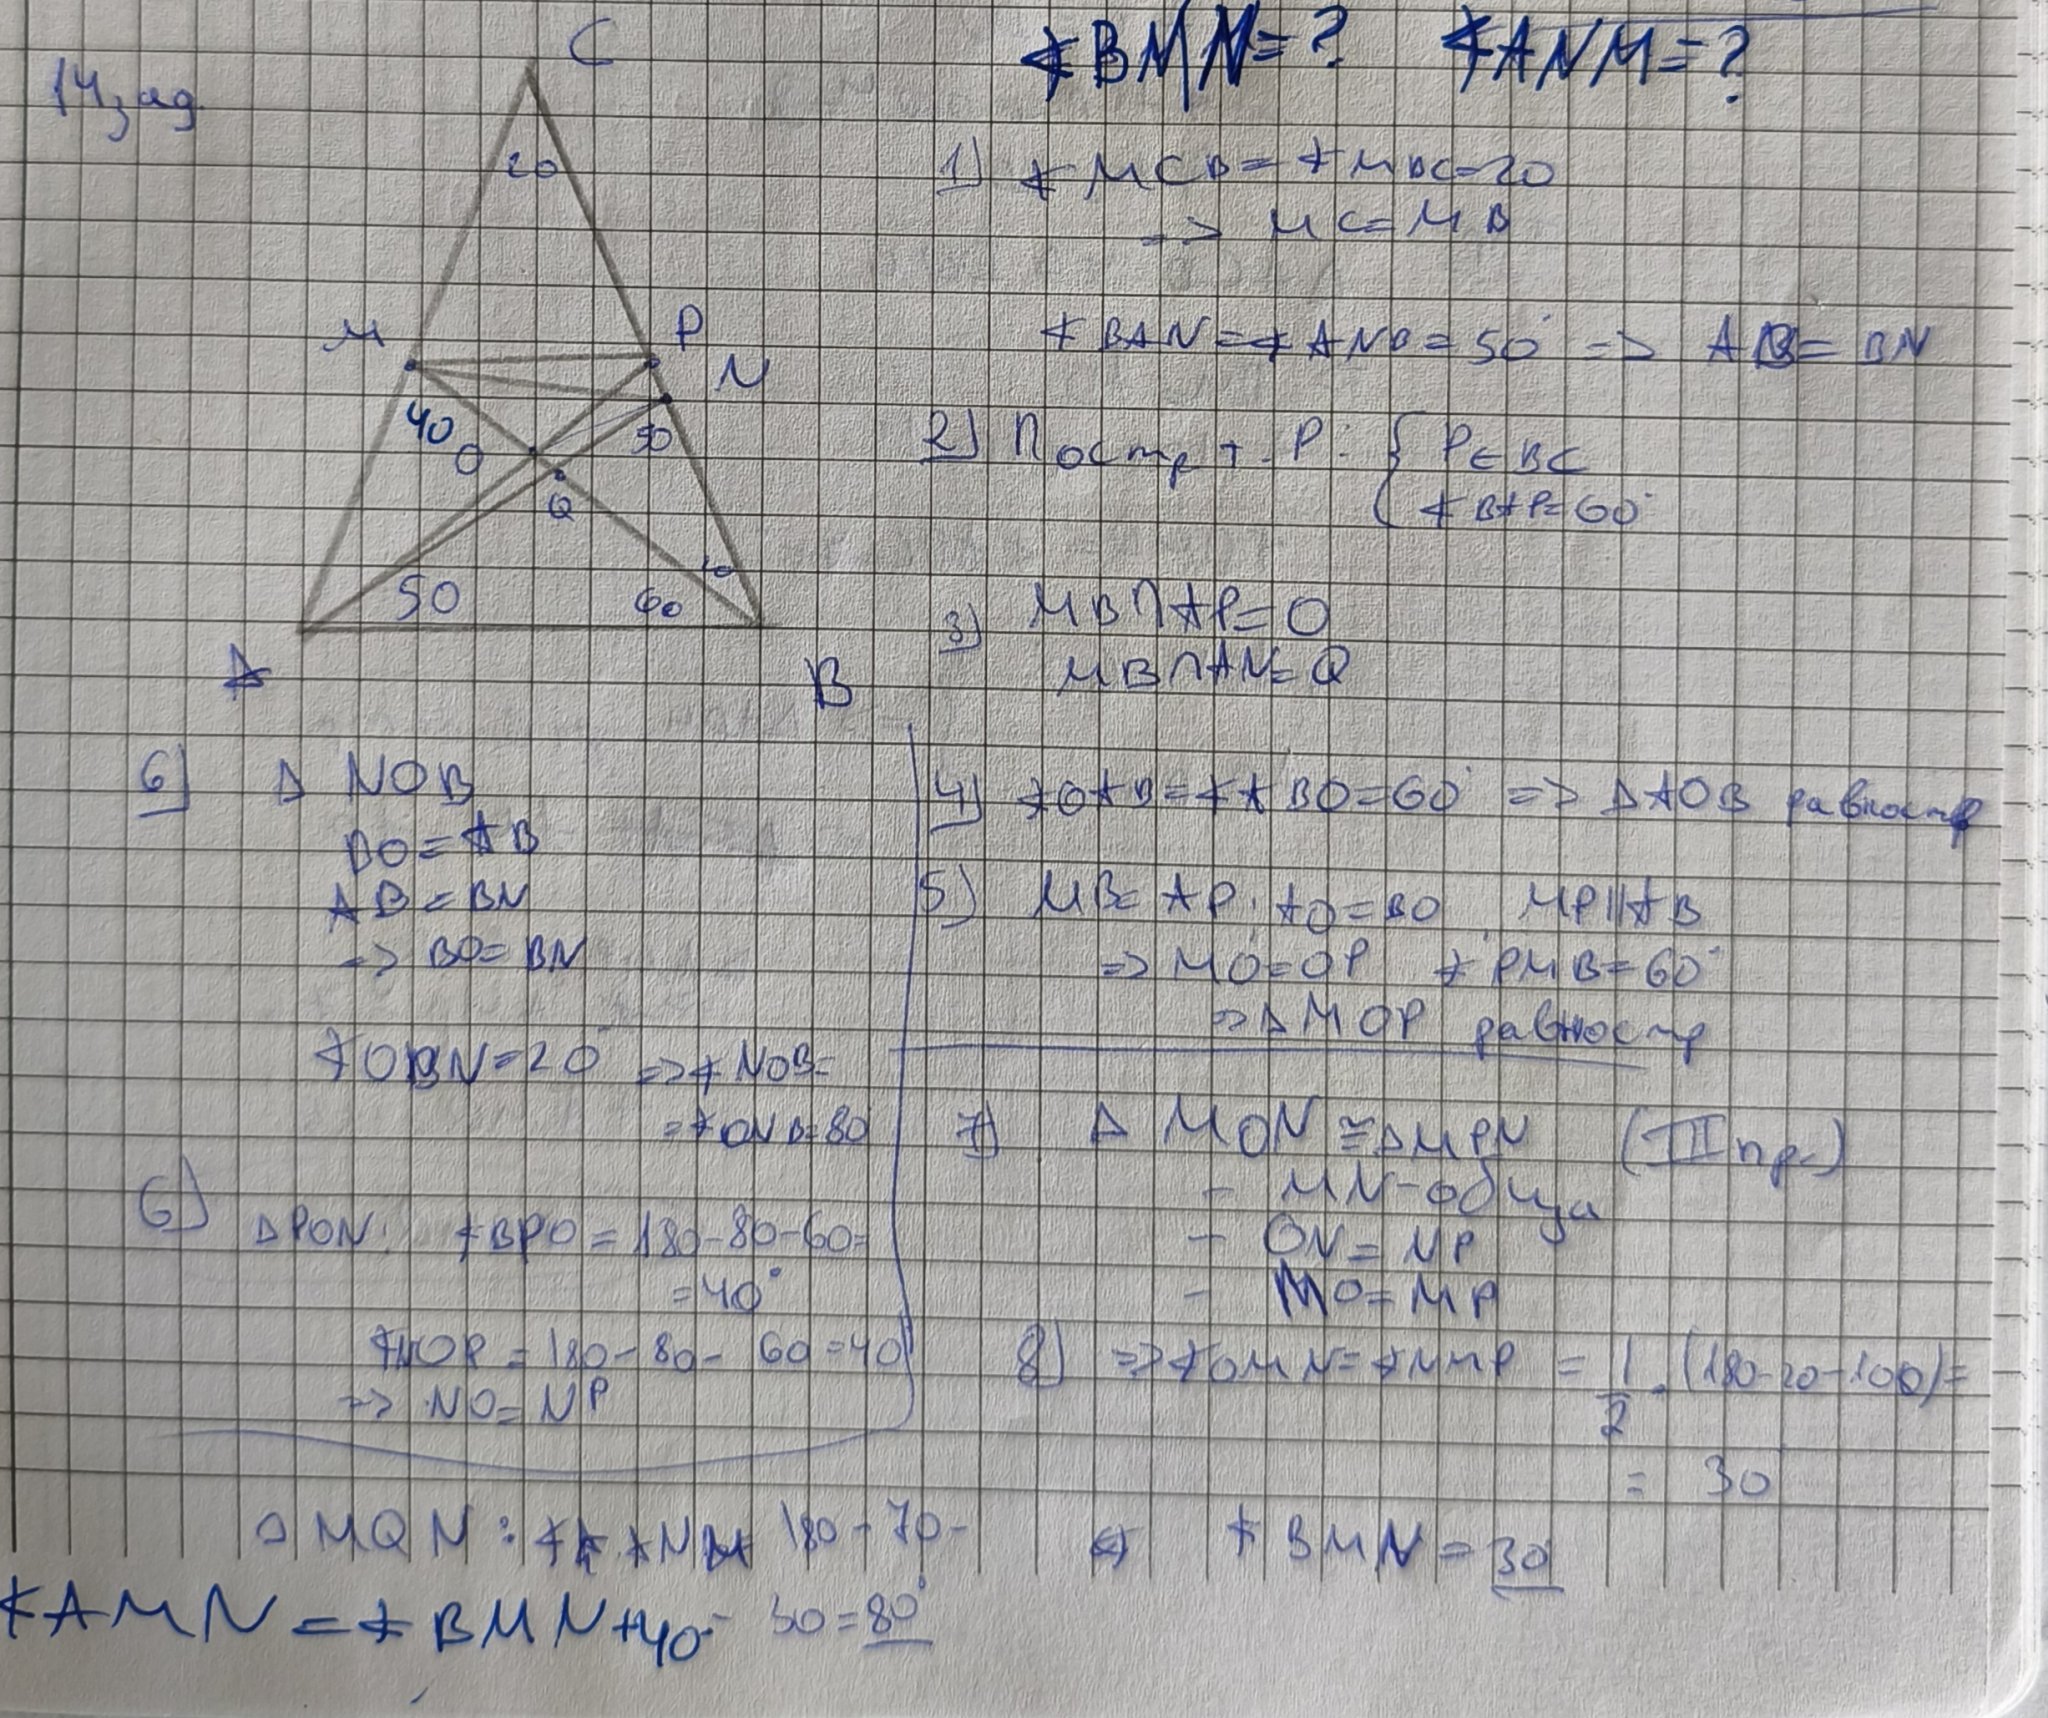 14 зад.
∢BMN=? ∢ANM=?
C
20
M
P
N
40
O
Q
50
50
60
A
B
1) ∢MCB=∢MBC=20
=> MC=MB
∢BAN=∢ANB=50° => AB=BN
2) Постр т. P: { P∈BC
∢BAP=60°
3) MB∩AP=O
MB∩AN=Q
4) ∢OAB=∢ABO=60° => △AOB равностр
5) MB=AP. AO=BO MP||AB
=> MO=OP ∢PMB=60°
=> △MOP равностр
6) △ NOB
BO=AB
AB=BN
=> BO=BN
∢OBN=20° => ∢NOB=
=∢ONB=80
6) △PON: ∢BPO=180-80-60=
=40°
∢NOP=180-80-60=40
=> NO=NP
7) △ MON≅△MPN (III пр.)
- MN-обща
- ON=NP
- MO=MP
8) => ∢OMN=∢NMP = 1/2 . (180-20-100)=
= 30
∢BMN=30
△MQN: 180-70-
30=80°
∢AMN=∢BMN+40°